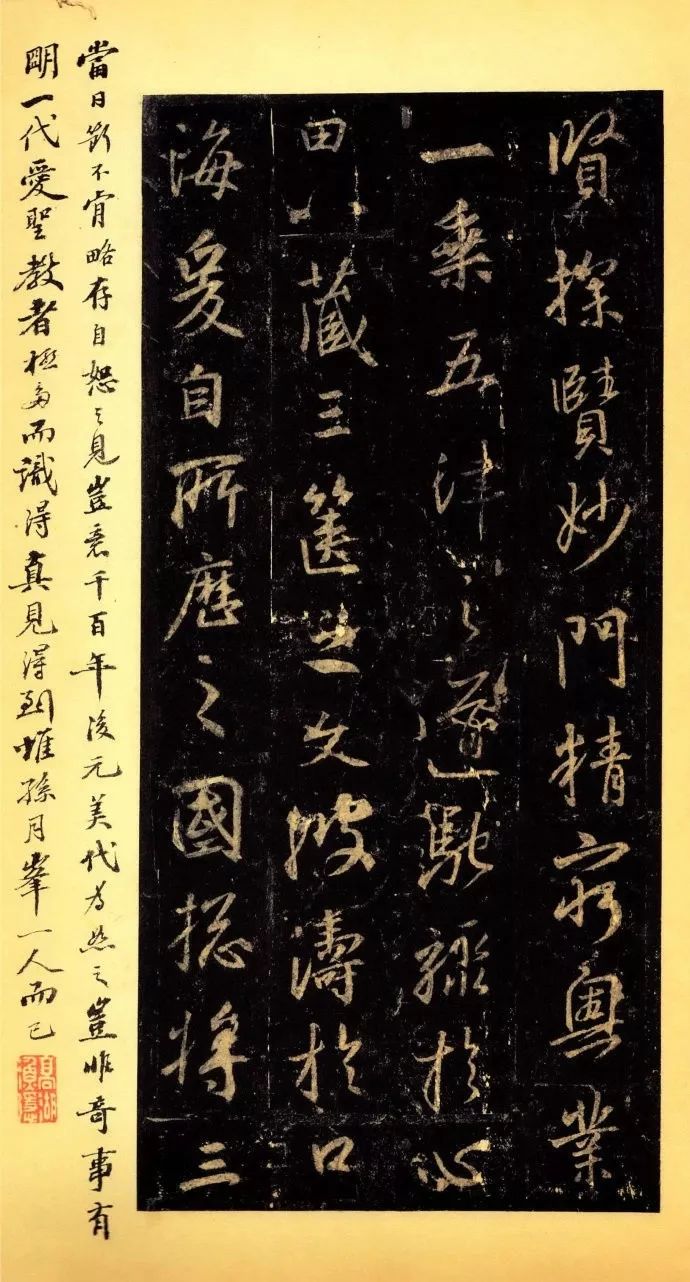 賢探賾妙門精窮奧業
一乘五律之道馳驟於心
田八藏三篋之文波濤於口
海爰自所歷之國揔將三
當日斷不肯略存自恕之見豈意千百年後元美代为恕之豈非奇事有
明一代愛聖教者極多而識得真見得到惟孫月峯一人而已